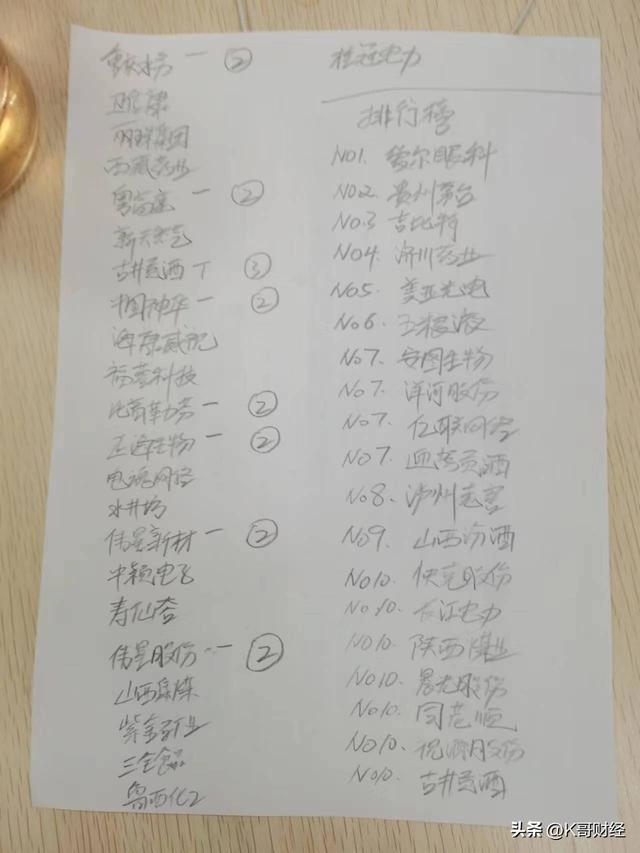 鱼跃医疗一 ②
卫宁健
丽珠集团
西藏药业
粤高速一 ②
新天然气
古井贡酒丅 ③
中国神华一 ②
海康威视
福蓉科技
比音勒芬一 ②
正海生物一 ②
电魂网络
水井坊
伟星新材一 ②
中颖电子
寿仙谷
伟星股份一 ②
山西焦煤
紫金矿业
三全食品
鲁西化工
桂冠电力
排行榜
NO1. 爱尔眼科
NO2. 贵州茅台
NO.3 吉比特
NO4. 济川药业
NO5. 美亚光电
No6. 五粮液
No7. 安图生物
No7. 洋河股份
No7. 亿联网络
No7. 迎驾贡酒
No8. 泸州老窖
NO9. 山西汾酒
NO10. 快克股份
NO10. 长江电力
NO10. 陕西煤业
NO10. 晨光股份
NO10. 同花顺
NO10. 股份
NO10. 古井贡酒
头条 @K哥财经